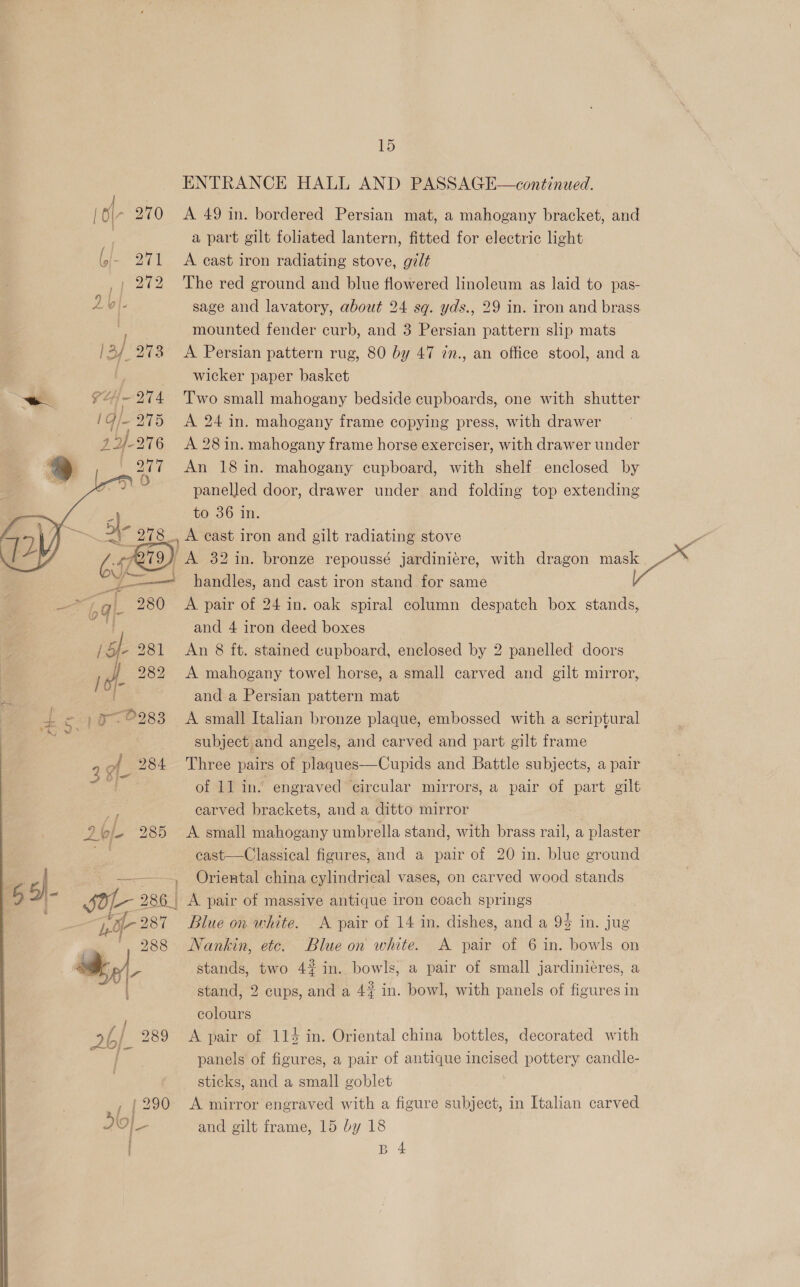 15
ENTRANCE HALL AND PASSAGE—continued.
16/- 270 A 49 in. bordered Persian mat, a mahogany bracket, and
a part gilt foliated lantern, fitted for electric light
6/- 271 A cast iron radiating stove, gilt
272 The red ground and blue flowered linoleum as laid to pas-
26/- sage and lavatory, about 24 sq. yds., 29 in. iron and brass
mounted fender curb, and 3 Persian pattern slip mats
13/ 273 A Persian pattern rug, 80 by 47 in., an office stool, and a
wicker paper basket
274 Two small mahogany bedside cupboards, one with shutter
19/- 275 A 24 in. mahogany frame copying press, with drawer
22/- 276 A 28 in. mahogany frame horse exerciser, with drawer under
277 An 18 in. mahogany cupboard, with shelf enclosed by
panelled door, drawer under and folding top extending
to 36 in.
5/- 278 A cast iron and gilt radiating stove
279 A 32 in. bronze repoussé jardinière, with dragon mask
handles, and cast iron stand for same
280 A pair of 24 in. oak spiral column despatch box stands,
and 4 iron deed boxes
15/- 281 An 8 ft. stained cupboard, enclosed by 2 panelled doors
16/- 282 A mahogany towel horse, a small carved and gilt mirror,
and a Persian pattern mat
283 A small Italian bronze plaque, embossed with a scriptural
subject and angels, and carved and part gilt frame
38/- 284 Three pairs of plaques—Cupids and Battle subjects, a pair
of 11 in. engraved circular mirrors, a pair of part gilt
carved brackets, and a ditto mirror
26/- 285 A small mahogany umbrella stand, with brass rail, a plaster
cast—Classical figures, and a pair of 20 in. blue ground
Oriental china cylindrical vases, on carved wood stands
55/- 50/- 286 A pair of massive antique iron coach springs
287 Blue on white. A pair of 14 in. dishes, and a 9½ in. jug
288 Nankin, etc. Blue on white. A pair of 6 in. bowls on
stands, two 4¾ in. bowls, a pair of small jardinières, a
stand, 2 cups, and a 4¾ in. bowl, with panels of figures in
colours
26/- 289 A pair of 11½ in. Oriental china bottles, decorated with
panels of figures, a pair of antique incised pottery candle-
sticks, and a small goblet
290 A mirror engraved with a figure subject, in Italian carved
30/- and gilt frame, 15 by 18
B 4